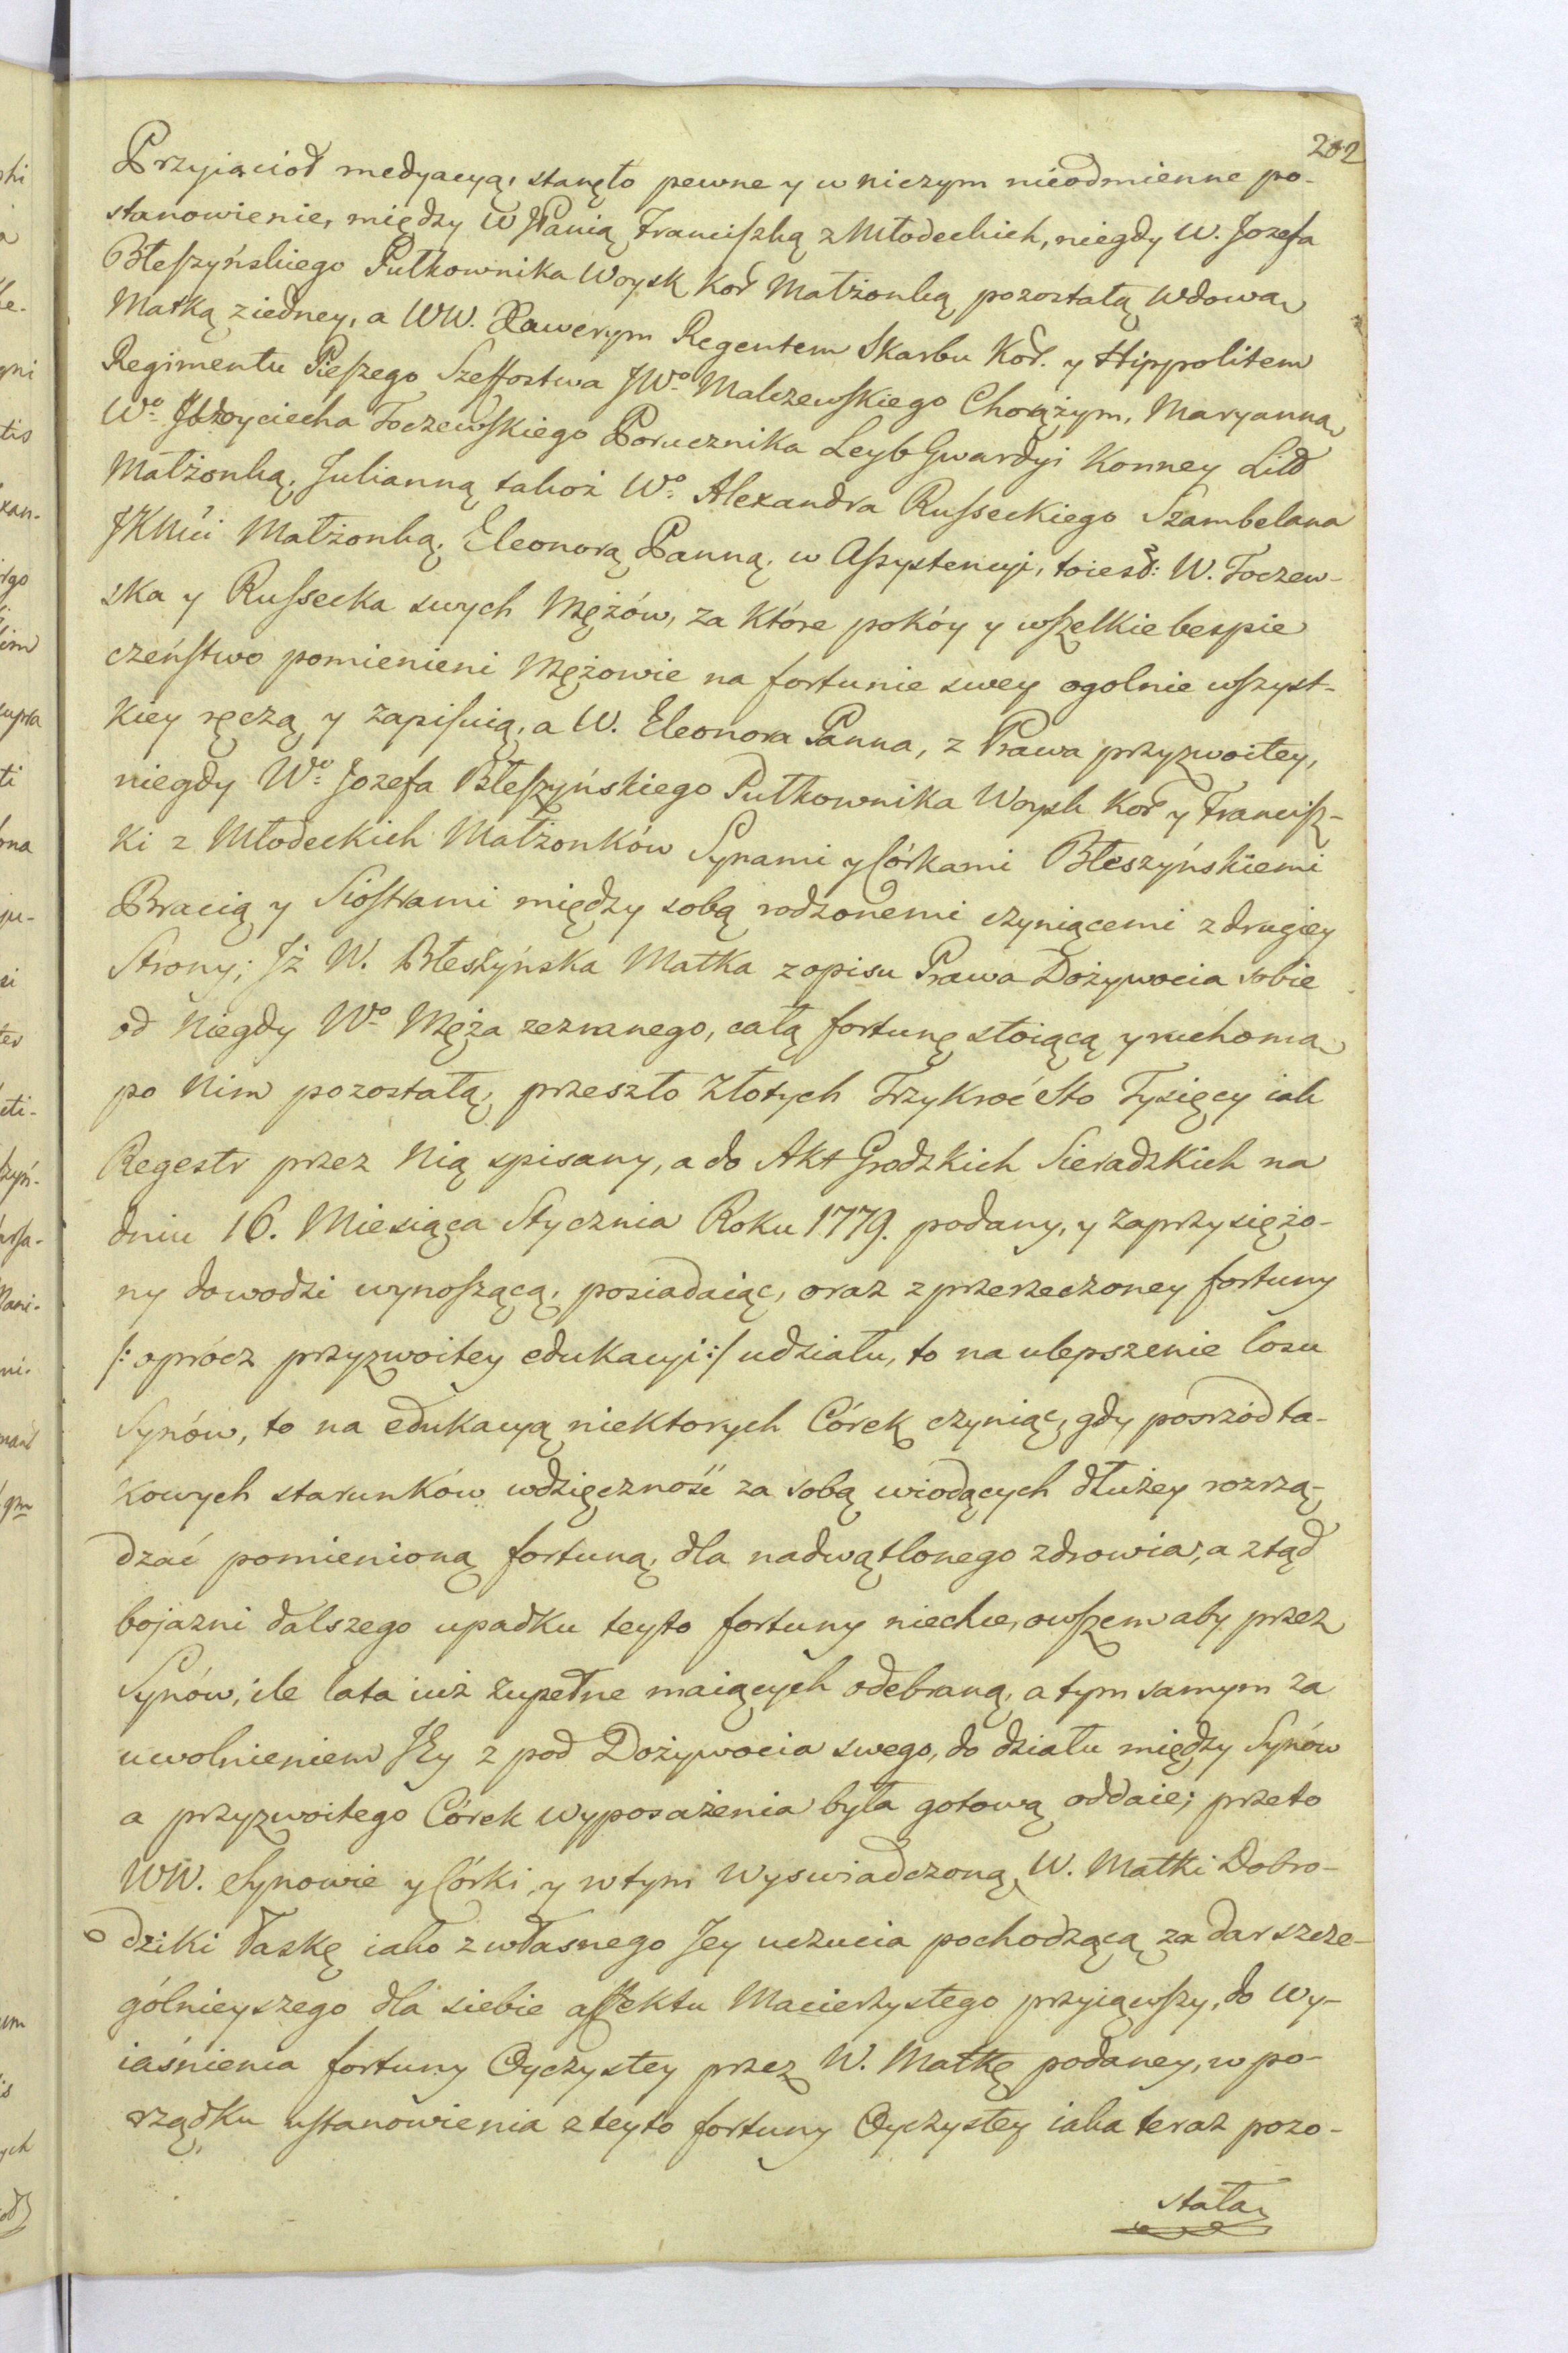 202
Przyiacioł medyacyą, stanęło pewne y w niczym nieodmienne po-
stanowienie, między W JPanią Franciszką z Młodeckich, niegdy W. Jozefa
Błeszyńskiego Pułkownika Woysk Kor Małżonką pozostałą Wdową
Matką z iedney, a WW. Xawerym Regentem Skarbu Kor. y Hippolitem
Regimentu Pieszego Szeffostwa JWo Malczewskiego Chorążym, Maryanną
Wo Woyciecha Toczewskiego Porucznika Leyb Gwardyi Konney Litt
Małżonką, Julianną takoż Wo Alexandra Russeckiego Szambelana
JKMci Małżonką, Eleonorą Panną, w Assystencyi, toiest: W. Toczew-
ska y Russecka swych Mężów, za które pokóy y wszelkie bespie
czeństwo pomienieni Mężowie na fortunie swey ogolnie wszyst-
kiey ręczą y zapisuią, a W. Eleonora Panna, z Prawa przyzwoitey,
niegdy Wo Jozefa Błeszyńskiego Pułkownika Woysk Kor y Francisz-
ki z Młodeckich Małżonków Synami y Córkami Błeszyńskiemi
Bracią y Siostrami między sobą rodzonemi czyniącemi z drugiey
Strony; Jż W. Błeszyńska Matka z opisu Prawa Dożywocia sobie
od Niegdy Wo Męża zeznanego, całą fortunę stoiącą y ruchomą
po Nim pozostałą, przeszło Złotych Trzykroć Sto Tysięcy iak
Regestr przez Nią spisany, a do Akt Grodzkich Sieradzkich na
dniu 16. Miesiąca Stycznia Roku 1779. podany, y zaprzysiężo-
ny dowodzi wynoszącą, posiadaiąc, oraz z przerzeczoney fortuny
/: oprócz przyzwoitey edukacyi :/ udziału, to na ulepszenie losu
Synów, to na edukacyą niektorych Córek czyniąc, gdy posrzód ta-
kowych starunków wdzięczność za sobą wiodących dłużey rozrzą-
dzać pomienioną fortuną, dla nadwątlonego zdrowia, a ztąd
bojazni dalszego upadku teyto fortuny niechce, owszem aby przez
Synów, ile lata iuż zupełne maiących odebraną, a tym samym za
uwolnieniem Jey z pod Dożywocia swego, do działu między Synów
a przyzwoitego Córek wyposażenia była gotową oddaie; przeto
WW. Synowie y Córki, y w tym wyswiadczoną W. Matki Dobro-
dziki łaskę iako z własnego Jey uczucia pochodzącą za dar szcze-
gólnieyszego dla siebie affektu Macierzystego przyiąwszy, do wy-
iaśnienia fortuny Oyczystey przez W. Matkę podaney, w po-
rządku ustanowienia z teyto fortuny Oyczystey iaka teraz pozo-
stała